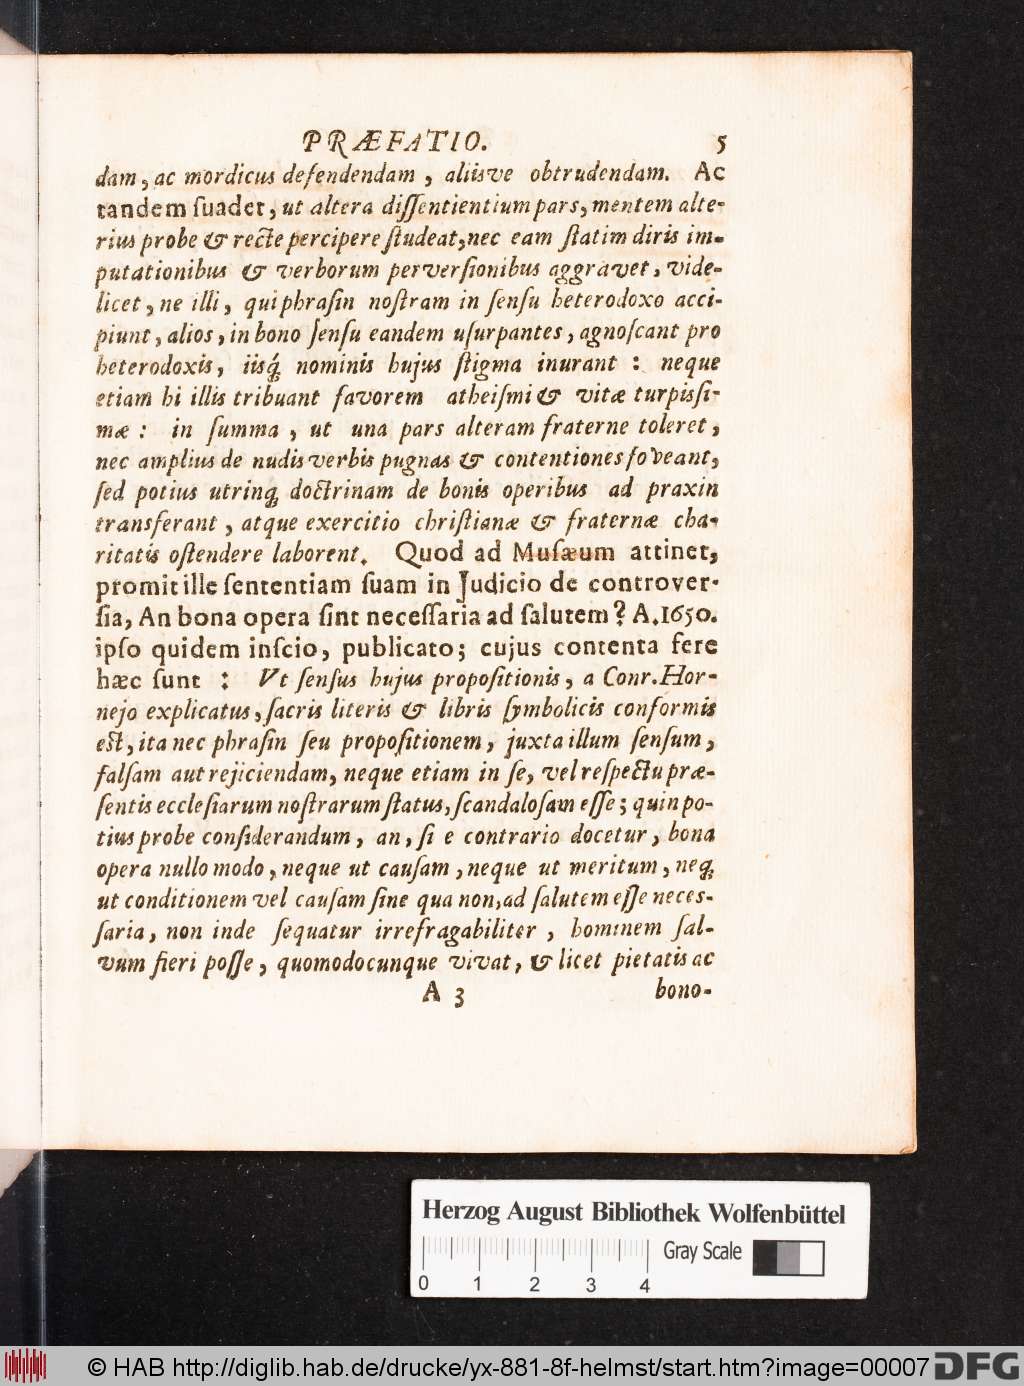 PRÆFATIO. 5
dam, ac mordicus defendendam, aliisve obtrudendam. Ac
tandem ſuadet, ut altera diſſentientium pars, mentem alte-
rius probe & recte percipere ſtudeat, nec eam ſtatim diris im-
putationibus & verborum perverſionibus aggravet, vide-
licet, ne illi, qui phraſin noſtram in ſenſu heterodoxo acci-
piunt, alios, in bono ſenſu eandem uſurpantes, agnoſcant pro
heterodoxis, iisq́; nominis hujus ſtigma inurant : neque
etiam hi illis tribuant favorem atheiſmi & vitæ turpisſi-
mæ : in ſumma, ut una pars alteram fraterne toleret,
nec amplius de nudis verbis pugnas & contentiones foveant,
ſed potius utrinq; doctrinam de bonis operibus ad praxin
transferant, atque exercitio chriſtianæ & fraternæ cha-
ritatis oſtendere laborent. Quod ad Muſæum attinet,
promit ille ſententiam ſuam in Judicio de controver-
ſia, An bona opera ſint neceſſaria ad ſalutem? A.1650.
ipſo quidem inſcio, publicato; cujus contenta fere
hæc ſunt : Ut ſenſus hujus propoſitionis, a Conr. Hor-
nejo explicatus, ſacris literis & libris ſymbolicis conformis
eſt, ita nec phraſin ſeu propoſitionem, juxta illum ſenſum,
falſam aut rejiciendam, neque etiam in ſe, vel reſpectu præ-
ſentis eccleſiarum noſtrarum ſtatus, ſcandaloſam eſſe; quin po-
tius probe conſiderandum, an, ſi e contrario docetur, bona
opera nullo modo, neque ut cauſam, neque ut meritum, neq;
ut conditionem vel cauſam ſine qua non, ad ſalutem eſſe neces-
ſaria, non inde ſequatur irrefragabiliter, hominem ſal-
vum fieri poſſe, quomodocunque vivat, & licet pietatis ac
A 3 bono-
Herzog August Bibliothek Wolfenbüttel
Gray Scale
0 1 2 3 4
© HAB http://diglib.hab.de/drucke/yx-881-8f-helmst/start.htm?image=00007 DFG